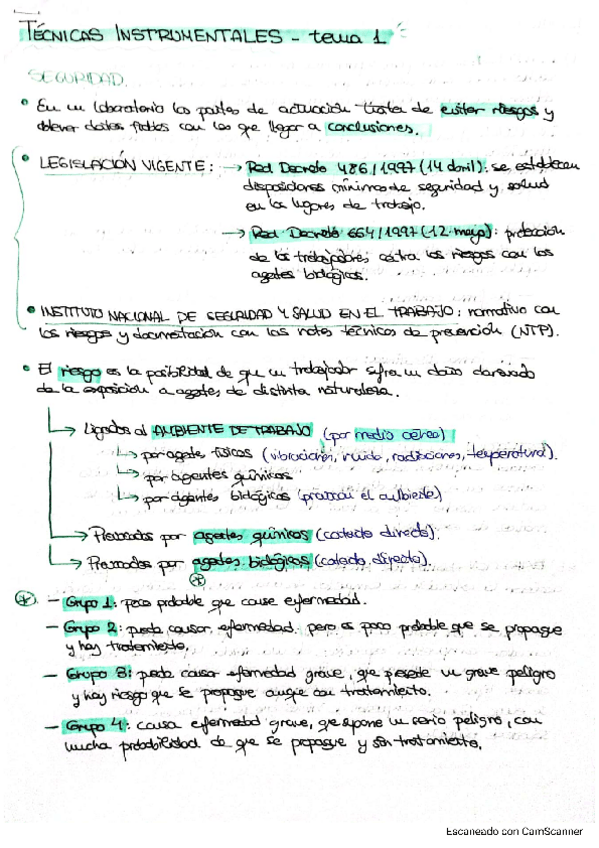 TÉCNICAS INSTRUMENTALES - tema 1
SEGURIDAD.
• En un laboratorio las pautas de actuación trata de evitar riesgos y
obtener datos fiables con los que llegar a conclusiones.
• LEGISLACIÓN VIGENTE: → Real Decreto 486/1997 (14 abril): se establecen
disposiciones mínimas de seguridad y salud
en los lugares de trabajo.
→ Real Decreto 664/1997 (12 mayo): protección
de los trabajadores contra los riesgos con los
agentes biológicos.
• INSTITUTO NACIONAL DE SEGURIDAD Y SALUD EN EL TRABAJO: normativa con
los riesgos y documentación con las notas técnicas de prevención (NTP).
• El riesgo es la posibilidad de que un trabajador sufra un daño derivado
de la exposición a agentes de distinta naturaleza.
→ Ligados al AMBIENTE DE TRABAJO (por medio aéreo)
→ por agentes físicos (vibraciones, ruido, radiaciones, temperatura).
→ por agentes químicos
→ por agentes biológicos (provocan el ambiente)
→ Provocados por agentes químicos (contacto directo).
→ Provocados por agentes biológicos (contacto directo).
*
* - Grupo 1: poco probable que cause enfermedad.
- Grupo 2: puede causar enfermedad pero es poco probable que se propague
y hay tratamiento.
- Grupo 3: puede causar enfermedad grave, que presente un grave peligro
y hay riesgo que se propague aunque con tratamiento.
- Grupo 4: causa enfermedad grave, que supone un serio peligro, con
mucha probabilidad de que se propague y sin tratamiento.
Escaneado con CamScanner